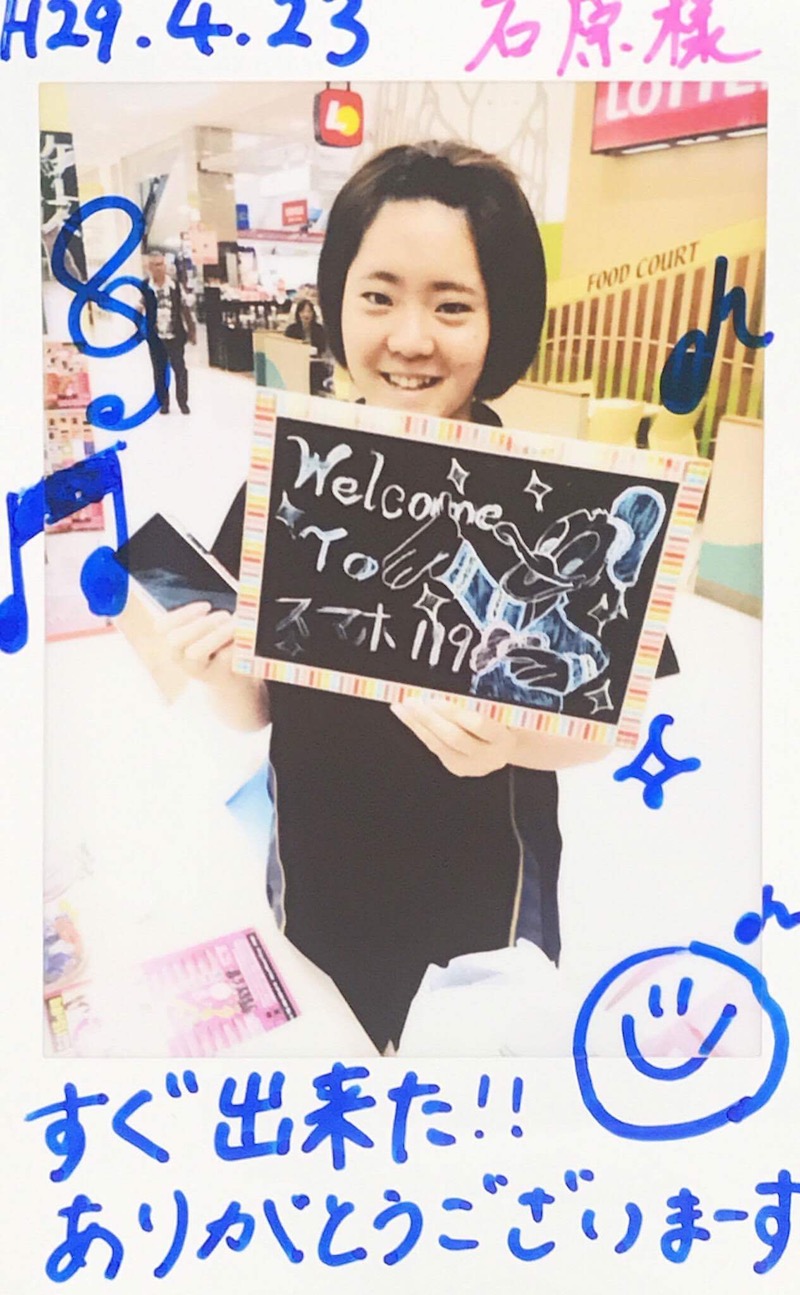 H29.4.23 石原様
LOTTE
FOOD COURT
Welcome
To
スマホ119
すぐ出来た!!
ありがとうございまーす